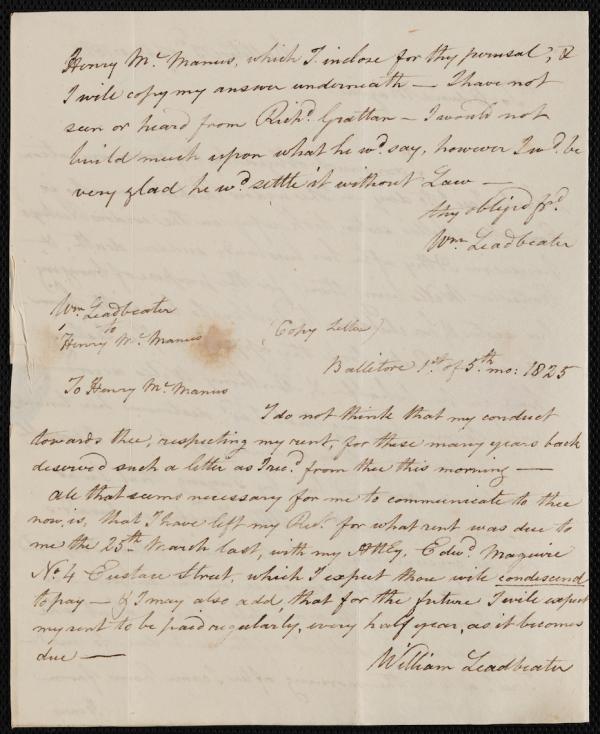 Henry Mc. Manus, which I inclose for thy perusal, &
I will copy my answer underneath — I have not
seen or heard from Richd. Grattan — I would not
build much upon what he wd. say, however I wd. be
very glad he wd. settle it without Law —
thy obliged frd.
Wm. Leadbeater
Wm. Leadbeater
to
Henry Mc. Manus
(Copy Letter)
Ballitore 1st. of 5th. mo: 1825
To Henry Mc. Manus
I do not think that my conduct
towards thee, respecting my rent, for these many years back
deserved such a letter as I recd. from thee this morning —
all that seems necessary for me to communicate to thee
now, is, that I have left my Rect. for what rent was due to
me the 25th. March last, with my Atty. Edwd. Maguire
No. 4 Eustace Street, which I expect thou wile condescend
to pay — & I may also add, that for the future I wile expect
my rent to be paid regularly, every half year, as it becomes
due —
William Leadbeater